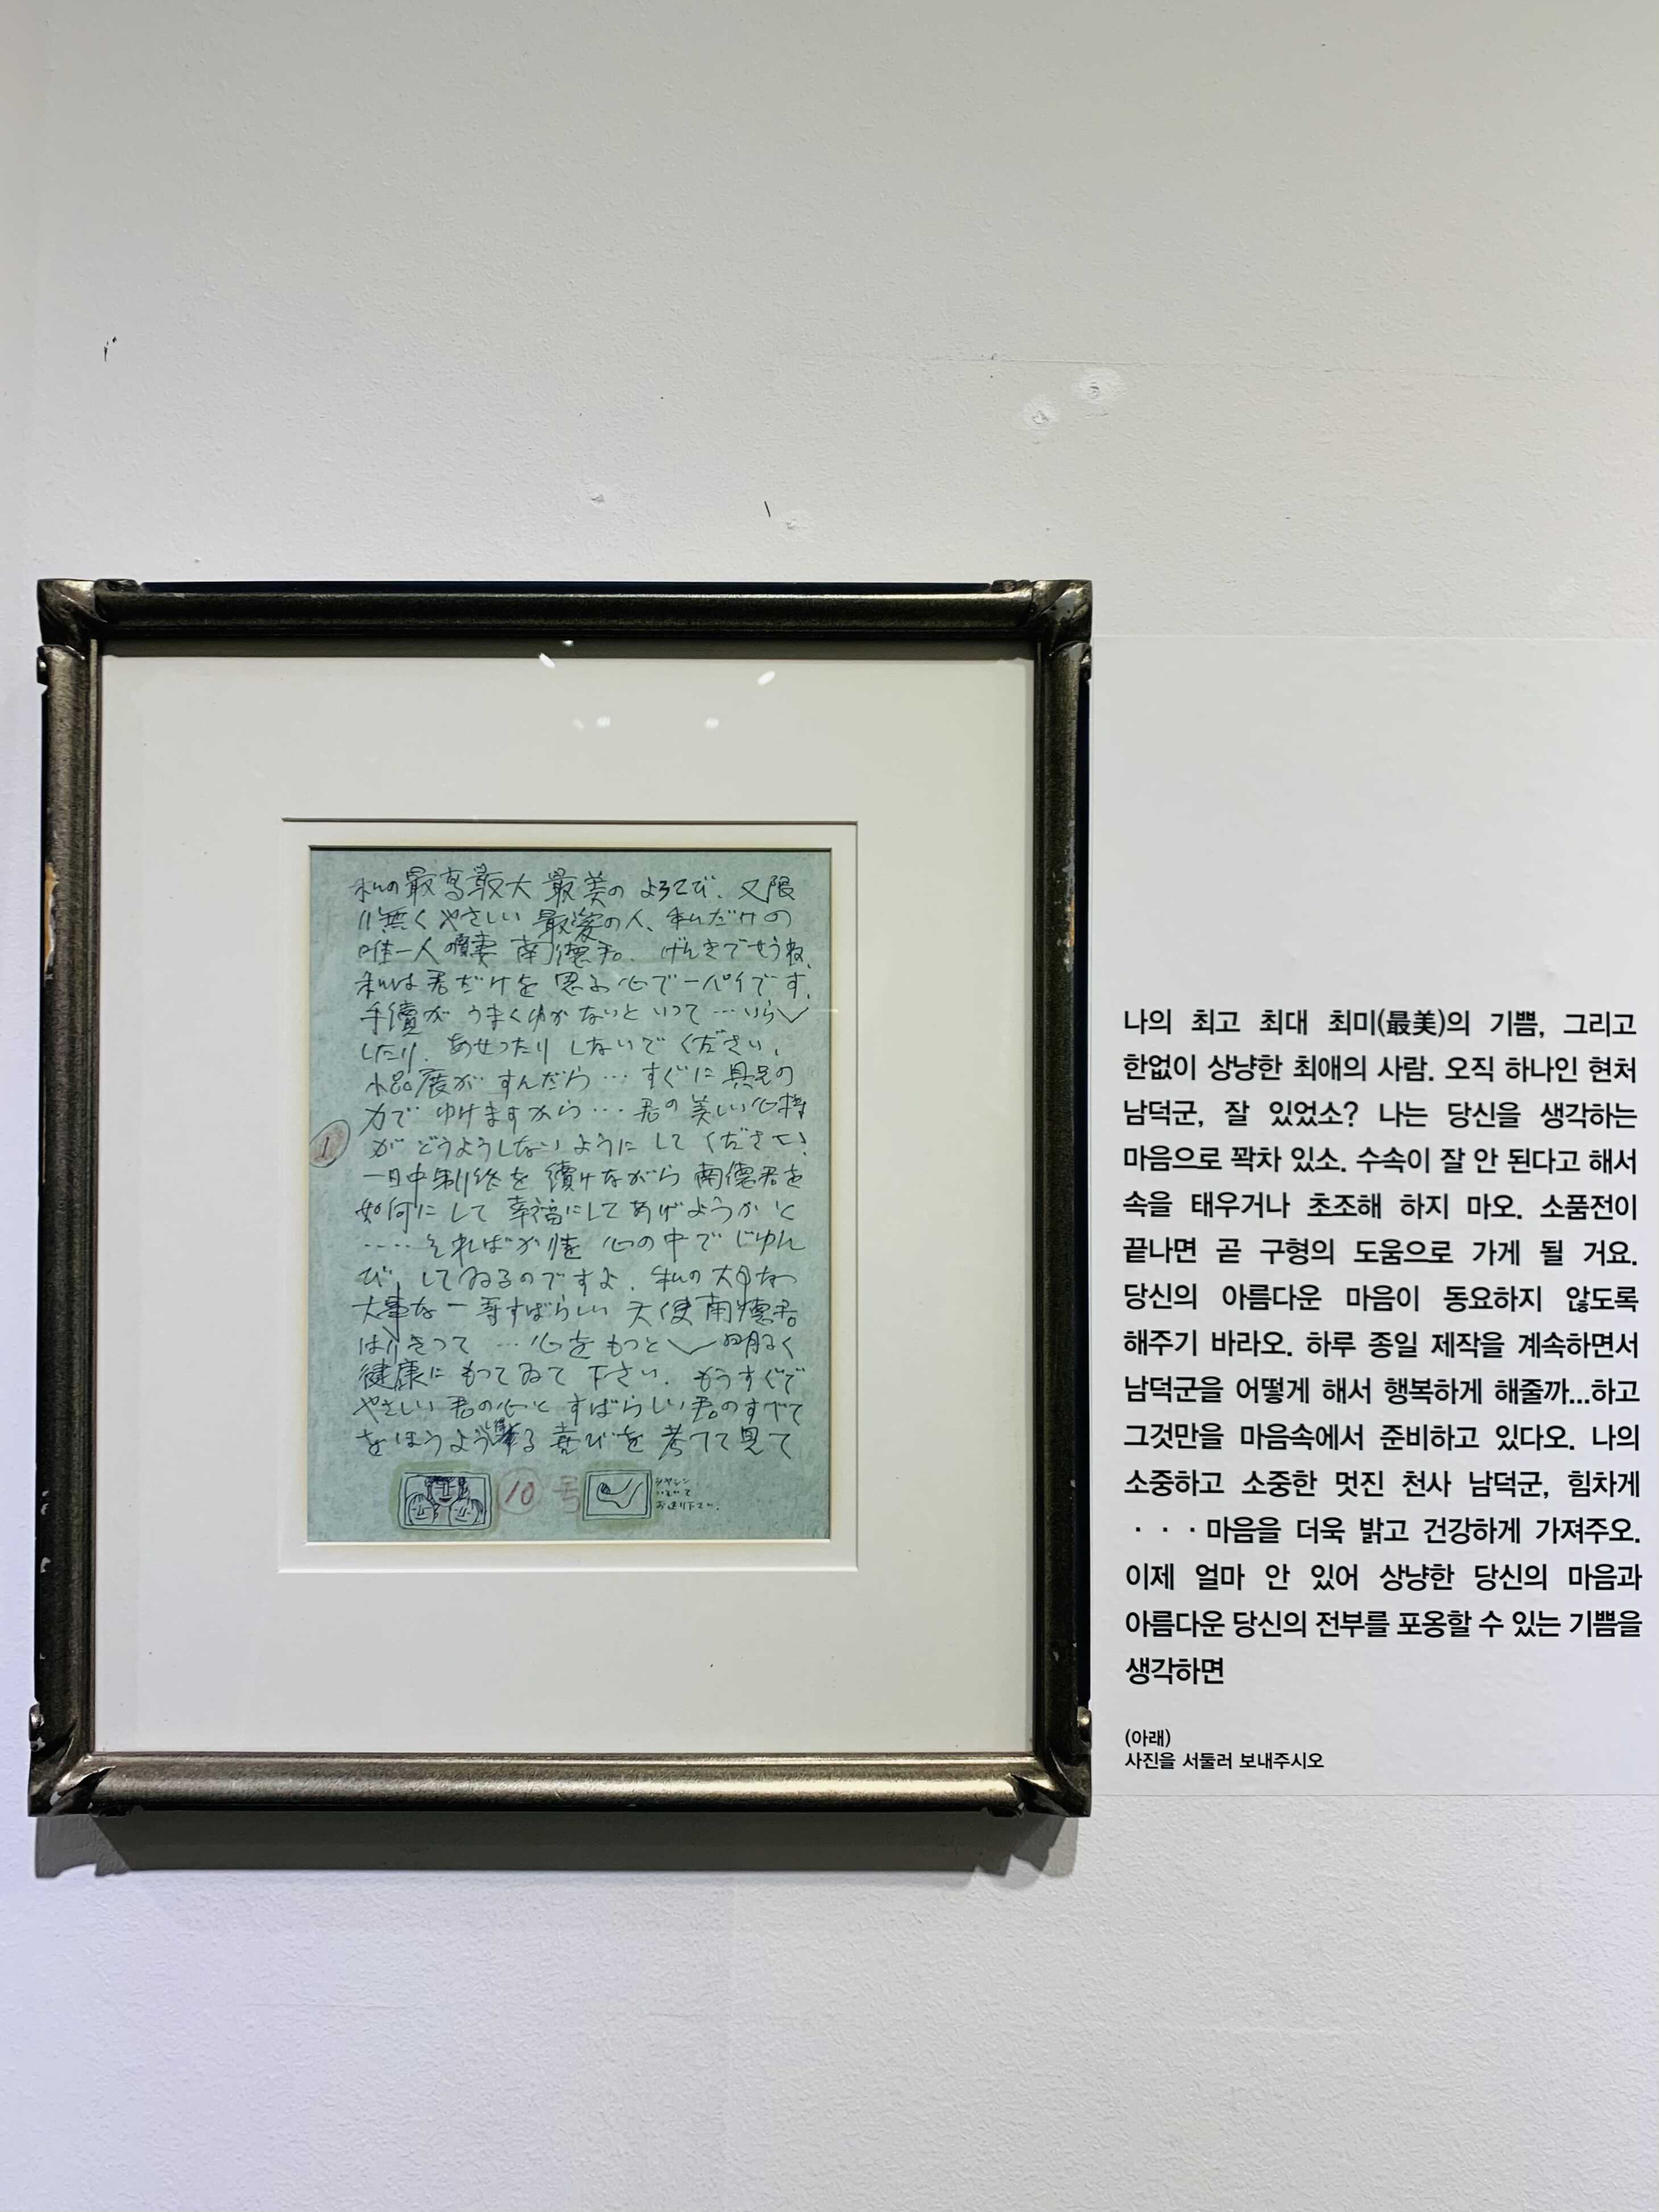 私の最高最大最美のよろこび、又限
り無くやさしい最愛の人、私だけの
唯一人の賢妻南德君。げんきでせうね、
私は君だけを思ふ心で一パイです、
手續がうまくゆかないといって…いら
したり、あせったりしないでください、
小品展がすんだら…すぐに具兄の
力でゆけますから…君の美しい心持
がどうようしないようにしてください
一日中制作を續けながら南德君を
如何にして幸福にしてあげようかと
‥‥そればかりを心の中でじゆん
び、してゐるのですよ、私の大切な
大事な一番すばらしい天使南德君
はりきって…心をもっと明るく
健康にもってゐて下さい、もうすぐで
やさしい君の心とすばらしい君のすべて
をほうよう る喜びを考へて見て
1
10 号
シヤシン
いそいで
お送り下さい、
나의 최고 최대 최미(最美)의 기쁨, 그리고
한없이 상냥한 최애의 사람. 오직 하나인 현처
남덕군, 잘 있었소? 나는 당신을 생각하는
마음으로 꽉차 있소. 수속이 잘 안 된다고 해서
속을 태우거나 초조해 하지 마오. 소품전이
끝나면 곧 구형의 도움으로 가게 될 거요.
당신의 아름다운 마음이 동요하지 않도록
해주기 바라오. 하루 종일 제작을 계속하면서
남덕군을 어떻게 해서 행복하게 해줄까...하고
그것만을 마음속에서 준비하고 있다오. 나의
소중하고 소중한 멋진 천사 남덕군, 힘차게
···마음을 더욱 밝고 건강하게 가져주오.
이제 얼마 안 있어 상냥한 당신의 마음과
아름다운 당신의 전부를 포옹할 수 있는 기쁨을
생각하면
(아래)
사진을 서둘러 보내주시오